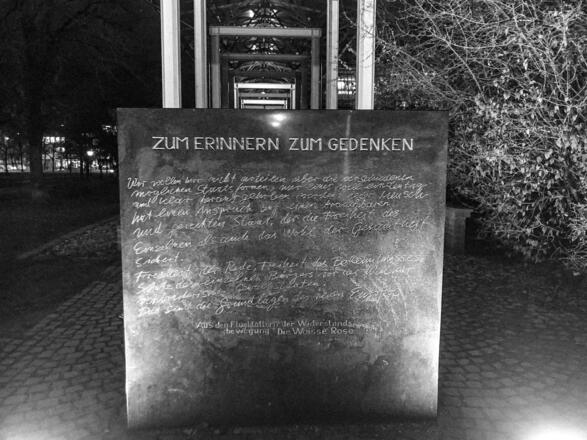 ZUM ERINNERN ZUM GEDENKEN
Wir wollen hier nicht urteilen über die verschiedenen
möglichen Staatsformen, nur eines will eindeutig
und klar herausgehoben werden: jeder Mensch
hat einen Anspruch auf einen brauchbaren
und gerechten Staat, der die Freiheit des
Einzelnen als auch das Wohl der Gesamtheit
sichert.
Freiheit der Rede, Freiheit des Bekenntnisses,
Schutz des einzelnen Bürgers vor der Willkür
verbrecherischer Gewaltstaaten
Das sind die Grundlagen des neuen Europa
Aus den Flugblättern der Widerstands-
bewegung "Die Weisse Rose"